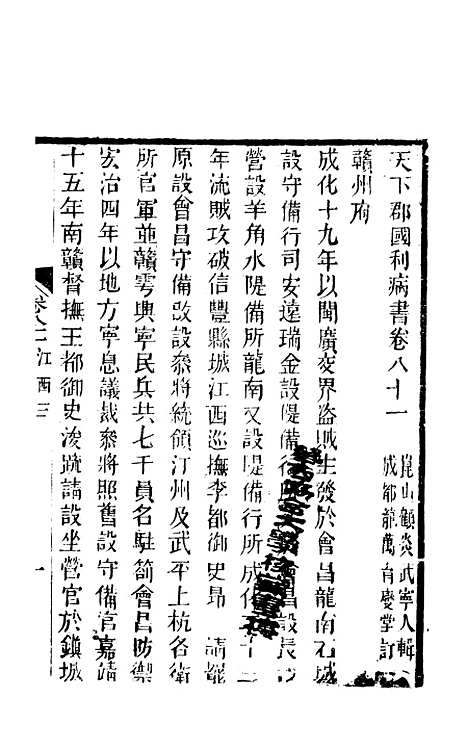 天下郡國利病書卷八十一
崑山顧炎武寧人輯
成都龍萬育燮堂訂
贛州府
成化十九年以閩廣交界盜賊生發於會昌龍南石城
設守備行司安遠瑞金設隄備行 會昌設長沙
營設羊角水隄備所龍南又設隄備行所成化 十三
年流賊攻破信豐縣城江西巡撫李都御史昂 請罷
原設會昌守備改設叅將統領汀州及武平上杭各衛
所官軍並贛雩興寧民兵共七千員名駐箚會昌防禦
宏治四年以地方寧息議裁叅將照舊設守備官嘉靖
十五年南贛督撫王都御史浚䟽請設坐營官於鎮城
卷八十一 江西三
一